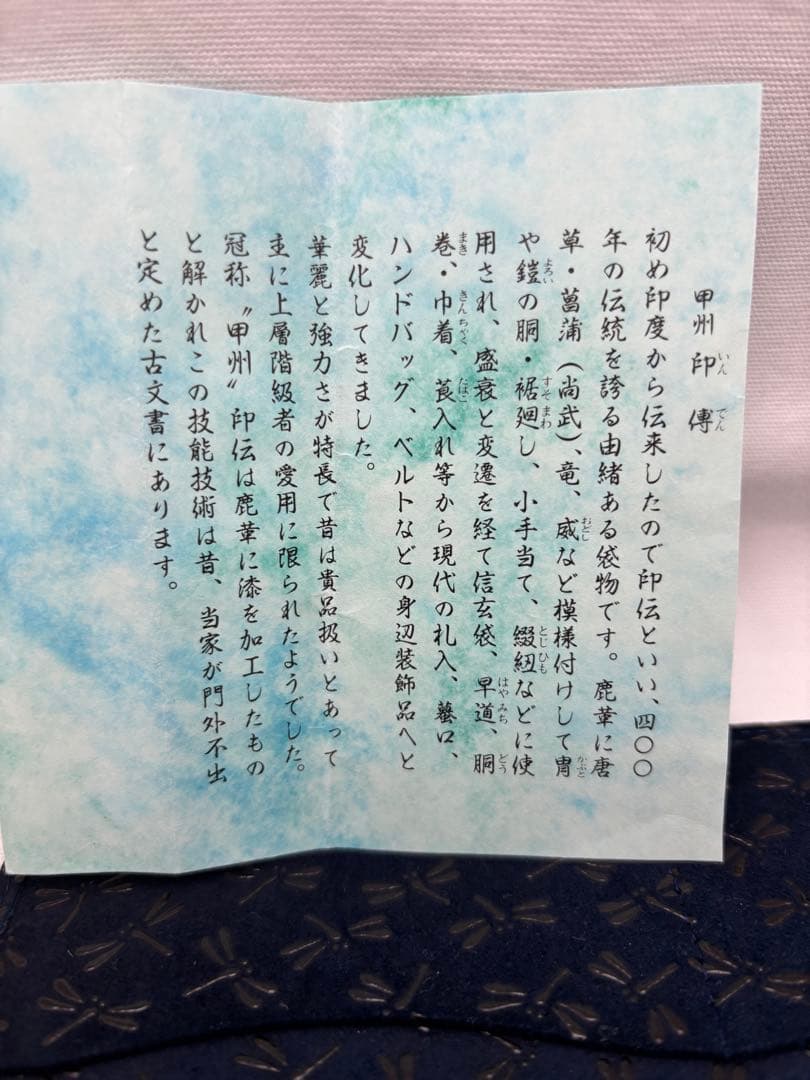 甲州印傳
いんでん
初め印度から伝来したので印伝といい、四〇〇
年の伝統を誇る由緒ある袋物です。鹿革に唐
草・菖蒲(尚武)、竜、威など模様付けして冑
おどし
かぶと
や鎧の胴・裾廻し、小手当て、綴紐などに使
よろい
すそまわ
とじひも
用され、盛衰と変遷を経て信玄袋、早道、胴
はやみち
どう
巻・巾着、莨入れ等から現代の札入、蟇口、
まき
きんちゃく
たばこ
ハンドバッグ、ベルトなどの身辺装飾品へと
変化してきました。
華麗と強力さが特長で昔は貴品扱いとあって
主に上層階級者の愛用に限られたようでした。
冠称〝甲州〟印伝は鹿革に漆を加工したもの
と解かれこの技能技術は昔、当家が門外不出
と定めた古文書にあります。